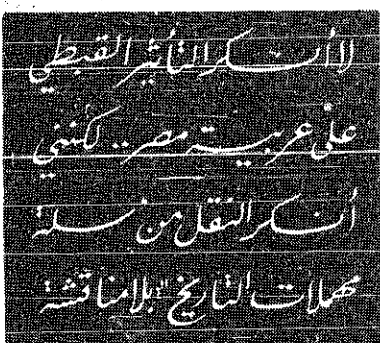 لا أنكر التأثير القبطي
على عربية مصر .. لكنني
أنكر النقل من "سلة
مهملات التاريخ" بلا مناقشة